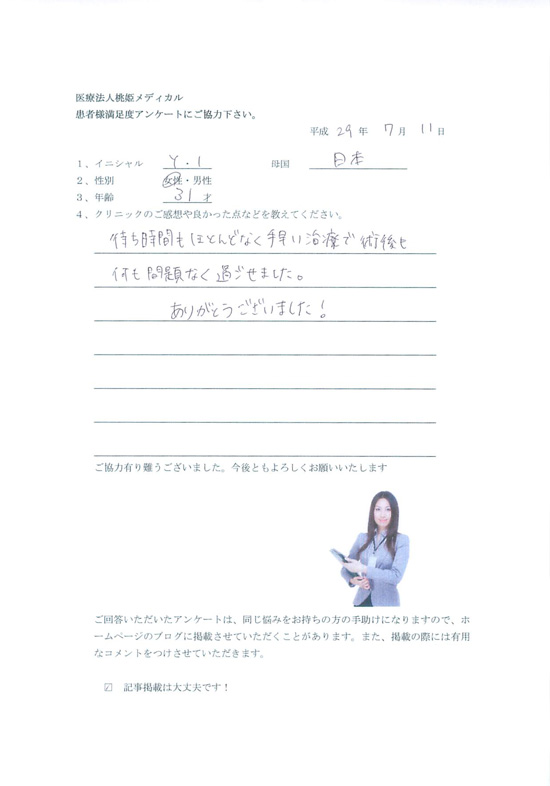 医療法人桃姫メディカル
患者様満足度アンケートにご協力下さい。
平成 29 年 7 月 11 日
1、イニシャル Y・I 母国 日本
2、性別 女性・男性
3、年齢 31 才
4、クリニックのご感想や良かった点などを教えてください。
待ち時間もほとんどなく手早い治療で術後も
何も問題なく過ごせました。
ありがとうございました!
ご協力有り難うございました。今後ともよろしくお願いいたします
ご回答いただいたアンケートは、同じ悩みをお持ちの方の手助けになりますので、ホ
ームページのブログに掲載させていただくことがあります。また、掲載の際には有用
なコメントをつけさせていただきます。
☑ 記事掲載は大丈夫です!